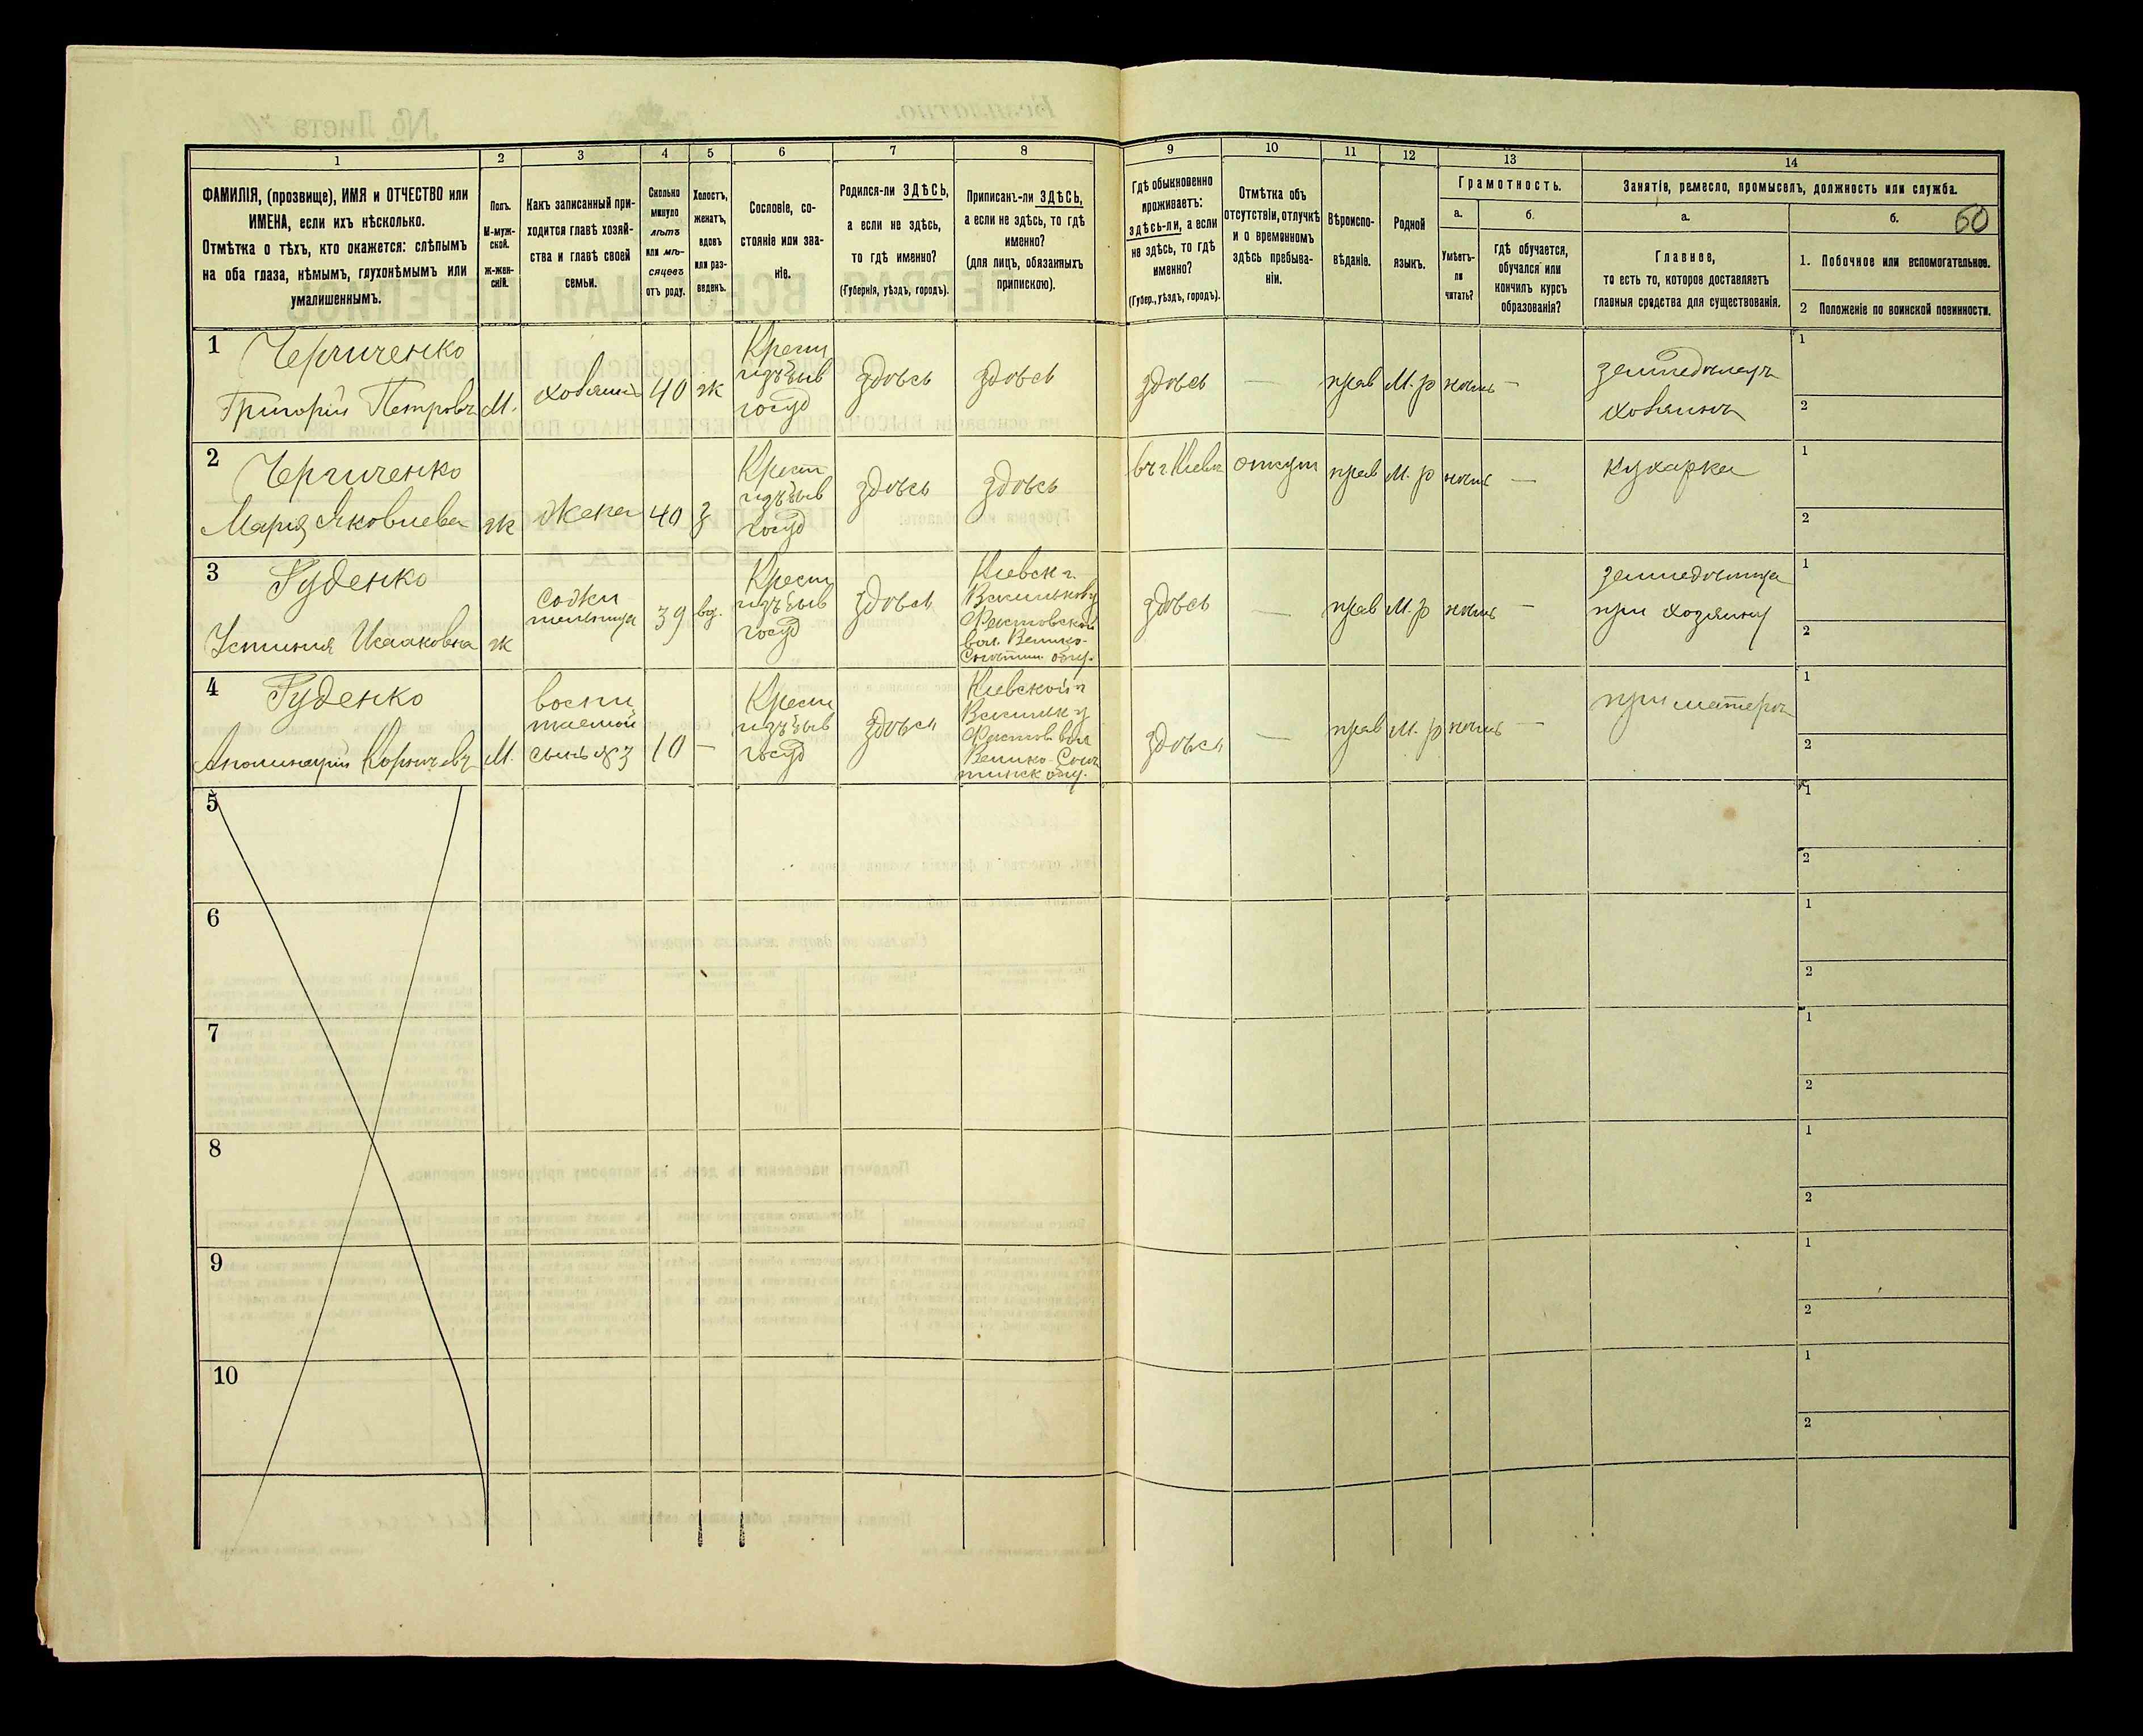 1 2 3 4 5 6 7 8 9 10 11 12 13 14
ФАМИЛІЯ, (прозвище), ИМЯ и ОТЧЕСТВО или
ИМЕНА, если ихъ нѣсколько.
Отмѣтка о тѣхъ, кто окажется: слѣпымъ
на оба глаза, нѣмымъ, глухонѣмымъ или
умалишеннымъ.
Полъ.
М-муж-
ской.
Ж-жен-
скій.
Какъ записанный при-
ходится главѣ хозяй-
ства и главѣ своей
семьи.
Сколько
минуло
лѣтъ
или мѣ-
сяцевъ
отъ роду.
Холостъ,
женатъ,
вдовъ
или раз-
веденъ.
Сословіе, со-
стояніе или зва-
ніе.
Родился-ли ЗДѢСЬ,
а если не здѣсь,
то гдѣ именно?
(Губернія, уѣздъ, городъ).
Приписанъ-ли ЗДѢСЬ,
а если не здѣсь, то гдѣ
именно?
(для лицъ, обязанныхъ
припискою).
Гдѣ обыкновенно
проживаетъ:
здѣсь-ли, а если
не здѣсь, то гдѣ
именно?
(Губер., уѣздъ, городъ).
Отмѣтка объ
отсутствіи, отлучкѣ
и о временномъ
здѣсь пребыва-
ніи.
Вѣроиспо-
вѣданіе.
Родной
языкъ.
Грамотность.
а.
Умѣетъ-
ли
читать?
б.
Гдѣ обучается,
обучался или
кончилъ курсъ
образованія?
Занятіе, ремесло, промыселъ, должность или служба.
а.
Главное,
то есть то, которое доставляетъ
главныя средства для существованія.
б.
60
1. Побочное или вспомогательное.
2 Положеніе по воинской повинности.
1
Григорій Петровъ
М.
хозяинъ
40
ж
Крест
изъ быв
госуд
здѣсь
здѣсь
здѣсь
—
прав
М. р
—
земледѣлецъ
хозяинъ
1
2
2
Марія Яковлева
ж
жена
40
з
Крест
изъ быв
госуд
здѣсь
здѣсь
въ г. Кіевѣ
отсут
прав
М. р
—
кухарка
1
2
3
Руденко
Устинія Исааковна
ж
сожи
тельница
39
вд.
Крест
изъ быв
госуд
здѣсь
Кіевск г.
Фастовской
вол. Велико-
здѣсь
—
прав
М. р
—
земледѣлица
при хозяину
1
2
4
Руденко
М.
воспи
таемой
сынъ №3
10
—
Крест
изъ быв
госуд
здѣсь
Кіевской г
Фастов вол
здѣсь
—
прав
М. р
—
при матери
1
2
5
1
2
6
1
2
7
1
2
8
1
2
9
1
2
10
1
2